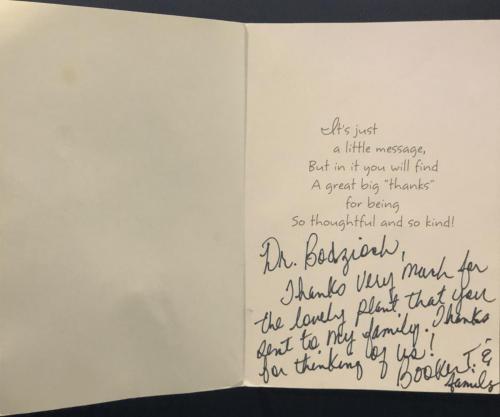 It's just
a little message,
But in it you will find
A great big "thanks"
for being
So thoughtful and so kind!
Dr. Bodzioch,
Thanks very much for
the lovely plant that you
sent to my family. Thanks
for thinking of us!
Booker T. &
family